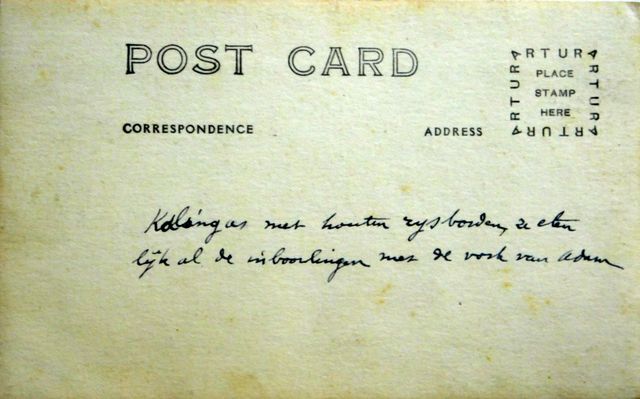 POST CARD
ARTURA
ARTURA
ARTURA
ARTURA
PLACE
STAMP
HERE
CORRESPONDENCE ADDRESS
Kalingas met houten rysborden, ze eten
lijk al de inboorlingen met de vork van Adam